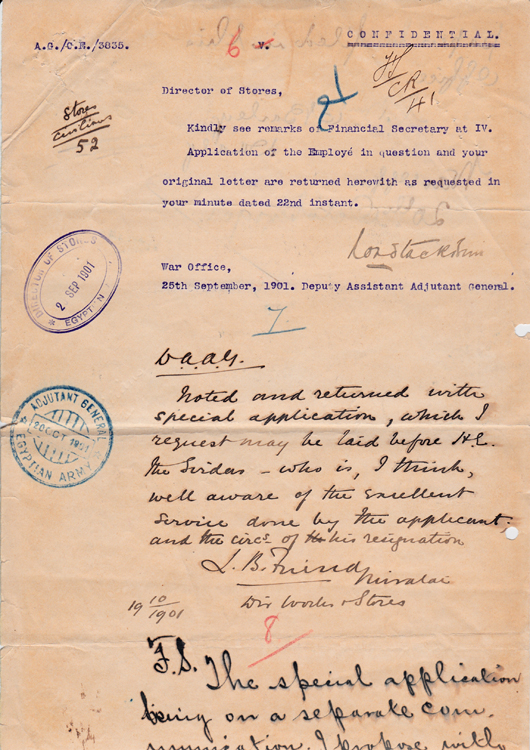 A.G./C.R./3835.
6 v.
CONFIDENTIAL.
CR
41
Director of Stores,
Stores
52
Kindly see remarks of Financial Secretary at IV.
Application of the Employé in question and your
original letter are returned herewith as requested in
your minute dated 22nd instant.
DIRECTOR OF STORES
2 SEP 1901
EGYPTIAN
War Office,
25th September, 1901. Deputy Assistant Adjutant General.
7
D.A.A.G.
Noted and returned with
special application, which I
request may be laid before H.E.
the Sirdar - who is, I think,
well aware of the excellent
service done by the applicant,
and the circs of his resignation
ADJUTANT GENERAL
2 OCT 1901
EGYPTIAN ARMY
L.B. Friend
Miralai
19 10/1901
Dir Works & Stores
8
F.S. The special application
being on a separate com-
munication, I propose with